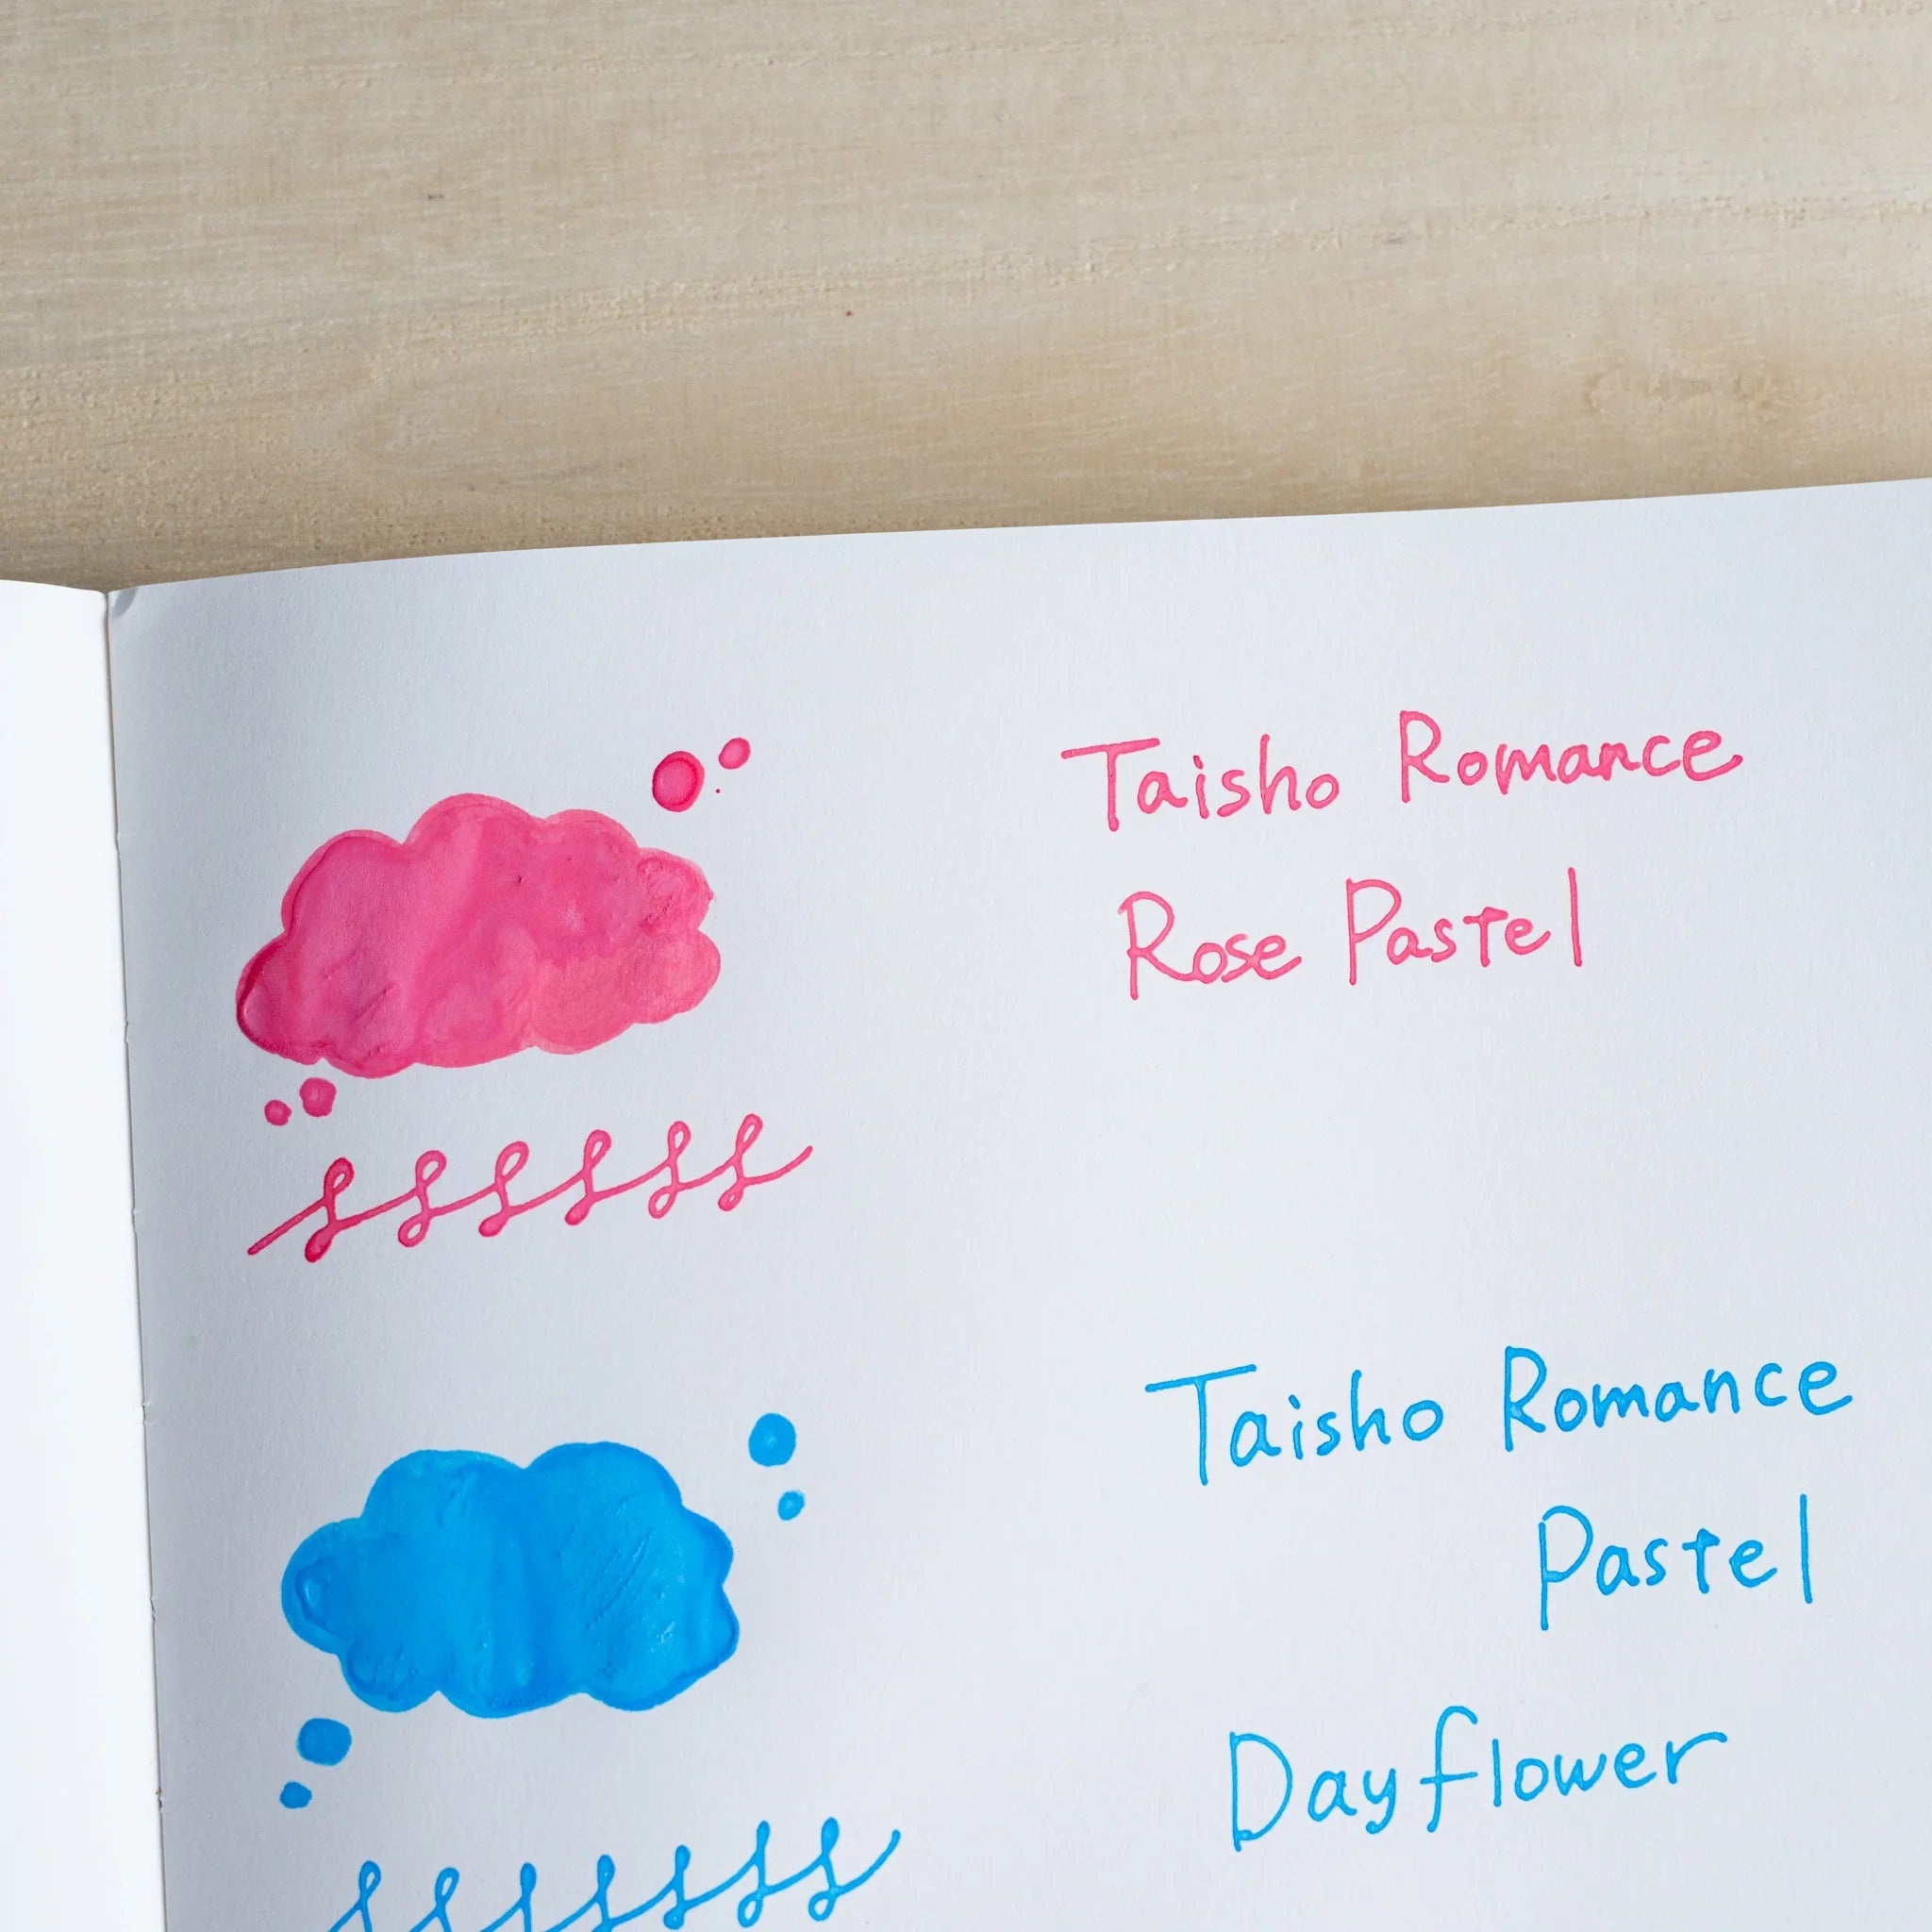 Taisho Romance
Rose Pastel
Taisho Romance
Pastel
Dayflower